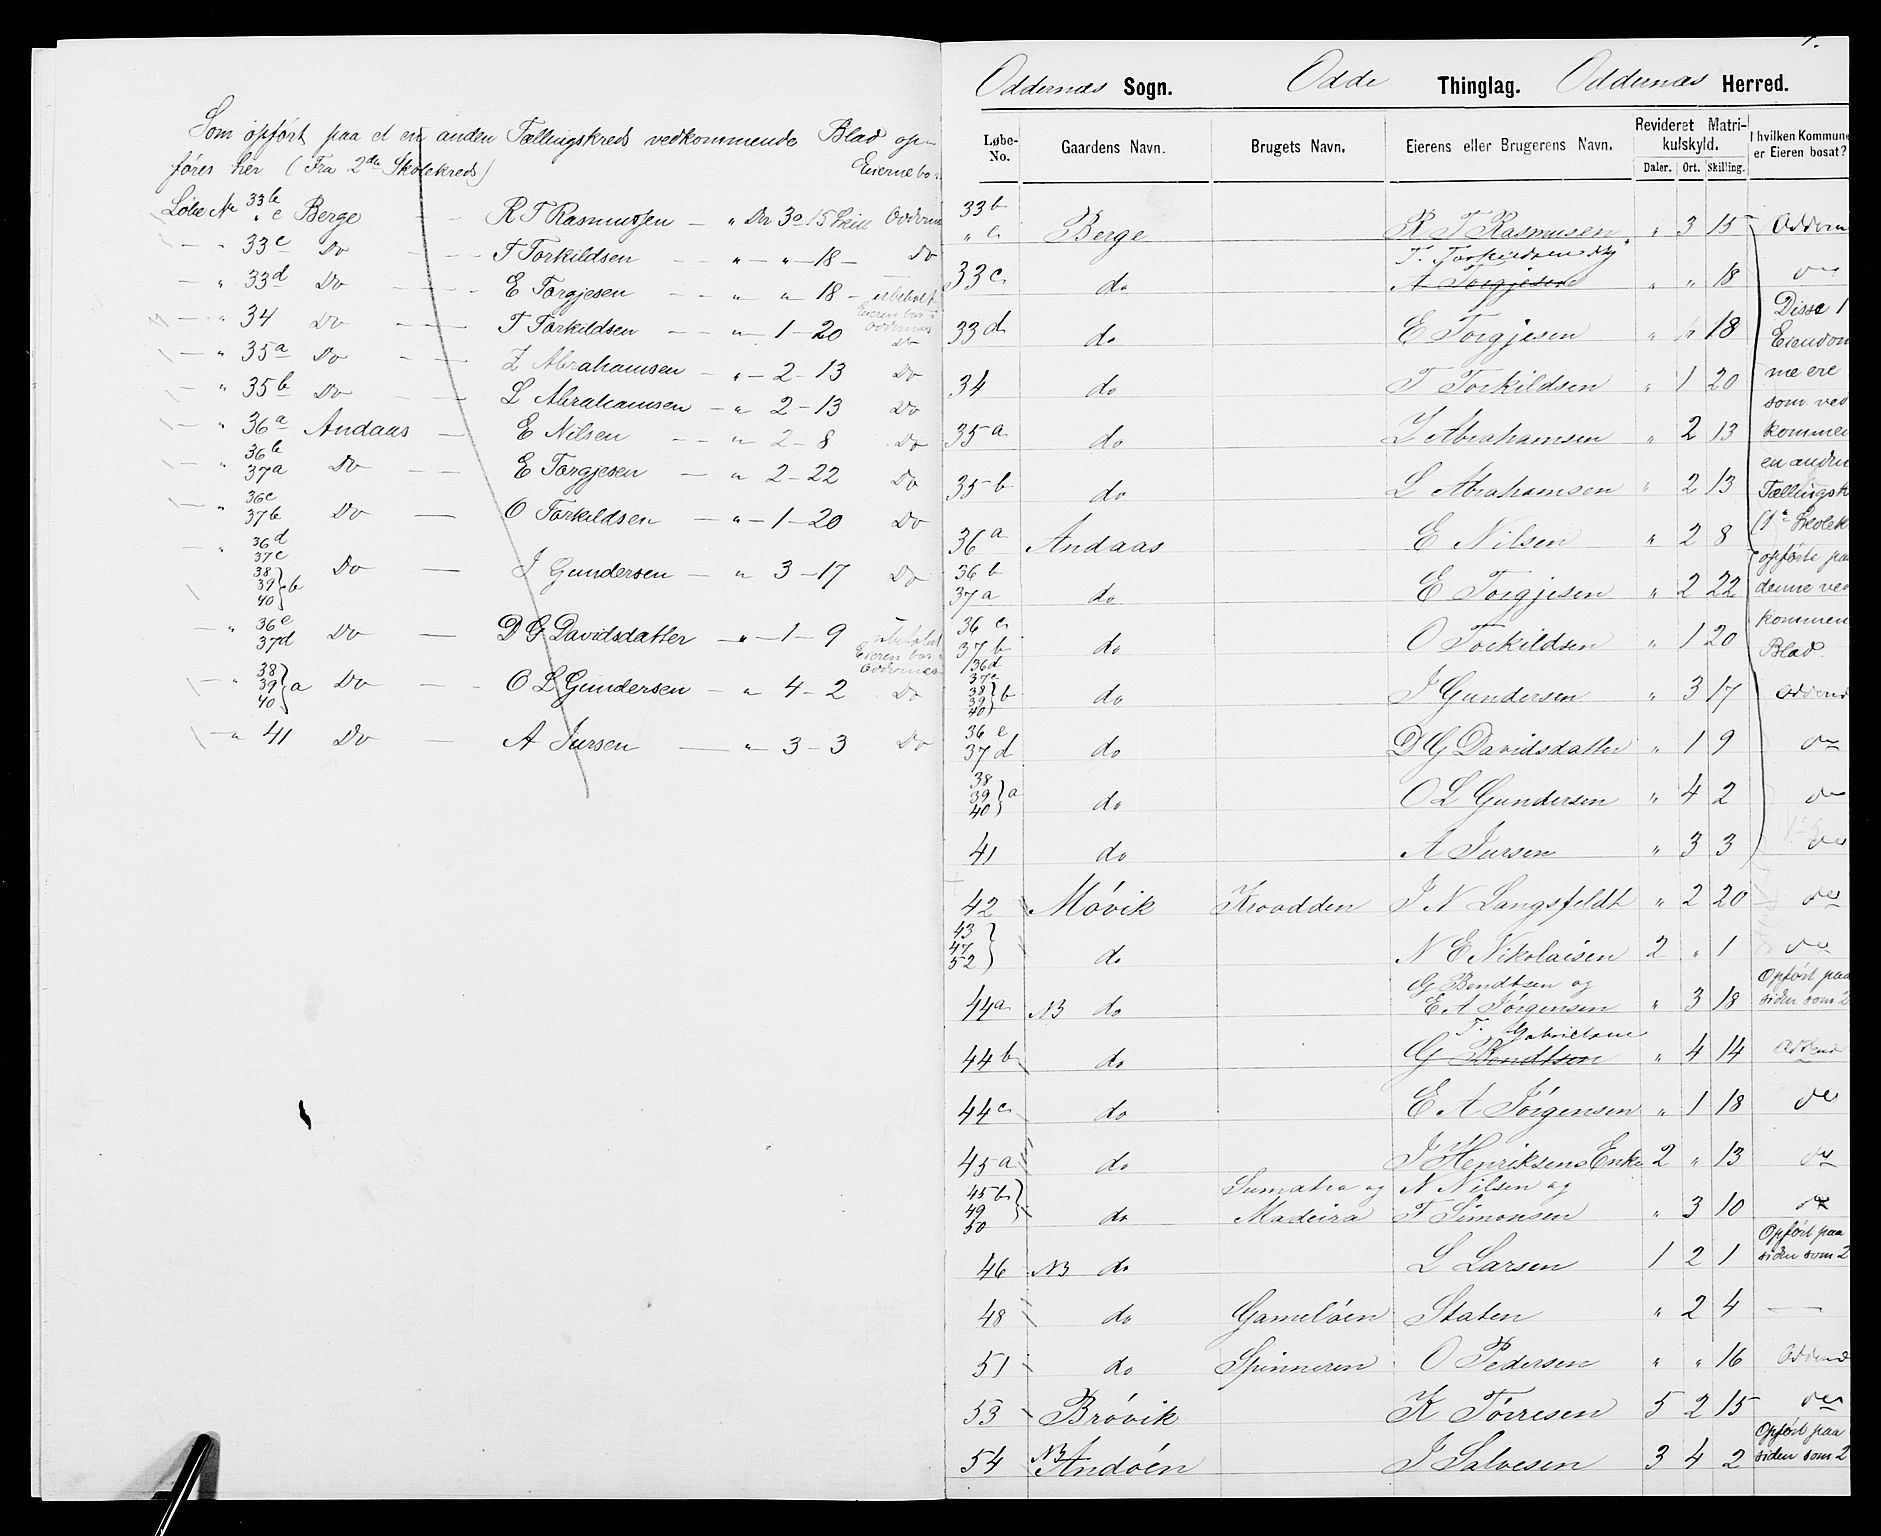 Som opført paa et en anden Tællingskreds vedkommende Blad op-
føres her (Fra 2den Skolekreds)
Eierne bo
Løbe No 33b "e Berge — R T Rasmussen — " Da 3 o 15 Skill Oddernæs
" 33c Do — T Torkildsen — " — " — 18 — Do
" 33d Do — E Torgjesen — " " 18 — ubeholt
Eieren bor i
Oddernæs
" 34 Do — T Torkildsen — " — 1 — 20 Do
" 35a Do — Z Abrahamsen — " — 2 — 13 Do
" 35b Do — L Abrahamsen — " 2 — 13 Do
" 36a Andaas — E Nilsen — " 2 — 8 Do
" 36b 37a Do — E Torgjesen — " 2 — 22 Do
" 36c 37b Do — O Torkildsen — " — 1 — 20 Do
" 36d 37c 38 39 40 } b Do — J Gundersen — " 3 — 17 Do
" 36e 37d Do — D G Davidsdatter — " — 1 — 9
Eieren bor i
Oddernæs
" 38 39 40 } a Do — O L Gundersen — " 4 — 2 Do
" 41 Do — A Iursen — " — 3 — 3 Do
Oddernæs Sogn. Odde Thinglag. Oddernæs Herred.
Løbe-No. Gaardens Navn. Brugets Navn. Eierens eller Brugerens Navn. Revideret Matri-kulskyld. Daler. Ort. Skilling. I hvilken Kommune er Eieren bosat?
33b "e Berge R T Rasmusen " 3 15 Oddern
T. Torkildsen
33c do A Torgjesen " " 18 do
33d do E Torgjesen " " 18 Disse 1
Eiendom
34 do T Torkildsen " 1 20 me ere
som ved
35a do Z Abrahamsen " 2 13 kommen
en anden
35b do L Abrahamsen " 2 13 Tællingsk
(1ste Skolek
36a Andaas E Nilsen " 2 8 opførte paa
36b 37a do E Torgjesen " 2 22 denne ved
kommen
36c 37b do O Torkildsen " 1 20 Blad.
36d 37c 38 39 40 } b do J Gundersen " 3 17 Oddernæ
36e 37d do D G Davidsdatter " 1 9 do
38 39 40 } a do O L Gundersen " 4 2 do
41 do A Iursen " 3 3 do
42 Møvik Kroodden J N Langsfeldt " 2 20 do
43 47 52 } do N E Nikolaisen 2 " 1 do
G Bendtsen og Opført paa
44a NB do E A Jørgensen " 3 18 siden som 2
T. Gabrielsen
44b do G Bendtsen " 4 14 Oddernæ
44c do E A Jørgensen " 1 18 do
45a do J Henriksens Enke 2 " 13 do
Sumatra og N Nilsen og
45b 49 50 } do Madeira T Simonsen " 3 10 do
Opført paa
46 NB do L Larsen 1 2 1 siden som 2
48 do Gameløen Staten " 2 4 —
51 do Spinneren O Pedersen " " 16 Oddernæ
53 Brøvik K Tørresen 5 2 15 do
Opført paa
54 NB Andøen J Salvesen 3 4 2 siden som 2